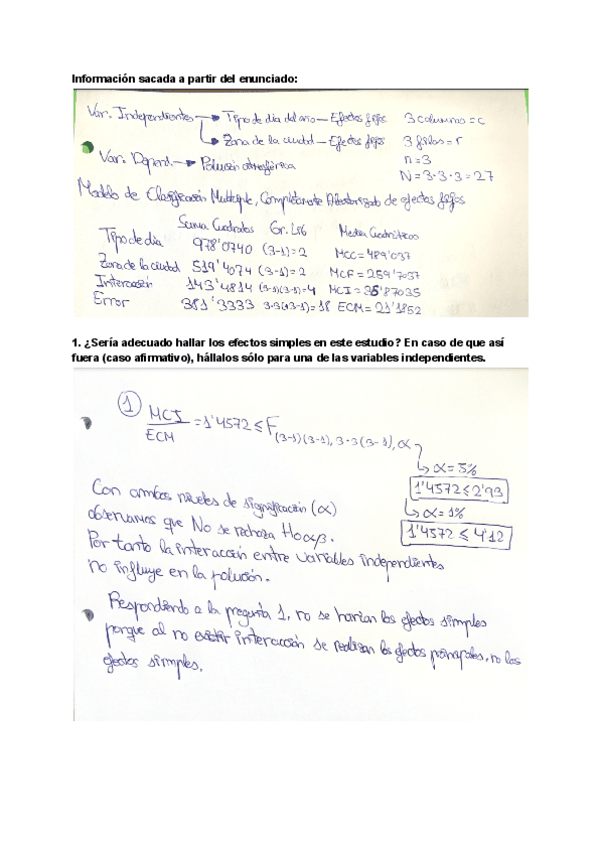 Información sacada a partir del enunciado:
Var. Independientes → Tipo de día del año – Efectos fijos 3 columnas = c
→ Zona de la ciudad – Efectos fijos 3 filas = r
Var. Depend. → Polución atmosférica n = 3
N = 3·3·3 = 27
Modelo de Clasificación Múltiple, Completamente Aleatorizado de efectos fijos
Suma Cuadrados Gr. Lib Media Cuadráticas
Tipo de día 978'0740 (3-1)=2 MCC = 489'037
Zona de la ciudad 519'4074 (3-1)=2 MCF = 259'7037
Interacción 143'4814 (3-1)(3-1)=4 MCI = 35'87035
Error 381'3333 3·3(3-1)=18 ECM = 21'1852
1. ¿Sería adecuado hallar los efectos simples en este estudio? En caso de que así
fuera (caso afirmativo), hállalos sólo para una de las variables independientes.
1 MCI/ECM = 1'4572 ≤ F(3-1)(3-1), 3·3(3-1), α
↳ α = 5%
1'4572 ≤ 2'93
↳ α = 1%
1'4572 ≤ 4'12
Con ambos niveles de significación (α)
observamos que No se rechaza H0αβ.
Por tanto la interacción entre variables independientes
no influye en la polución.
Respondiendo a la pregunta 1, no se harían los efectos simples
porque al no existir interacción se realizan los efectos principales, no los
efectos simples.